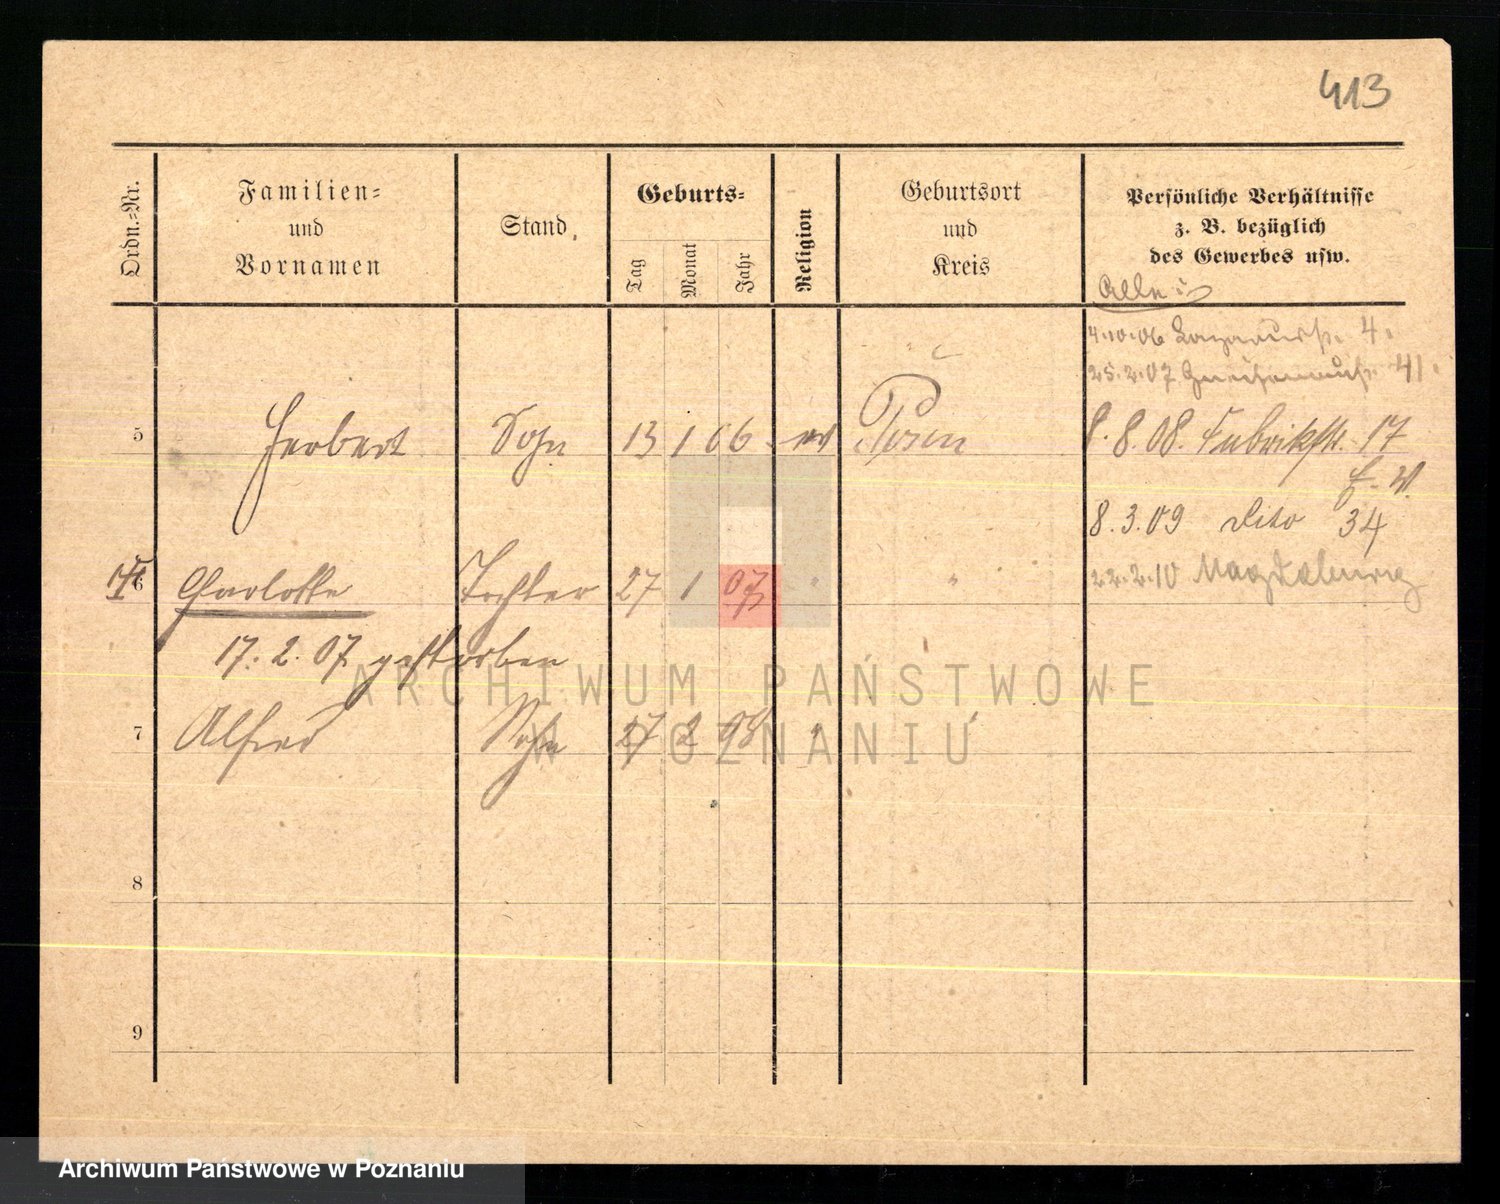 413
Ordn.=Nr.
Familien=
und
Vornamen
Stand
Geburts=
Tag
Monat
Jahr
Religion
Geburtsort
und
Kreis
Persönliche Verhältnisse
z. B. bezüglich
des Gewerbes usw.
4.10.06 4.
25.2.07 Gneisenaustr. 41.
5 Herbert Sohn 13 1 06 ev Posen 8.8.08. Fabrikstr. 17
8.3.09 dito 34
6 Charlotte Tochter 27 1 07 " " 22.2.10 Magdeburg
17. 2. 07 gestorben
7 Alfred Sohn 27 2 08 "
8
9
ARCHIWUM PAŃSTWOWE
W POZNANIU
Archiwum Państwowe w Poznaniu